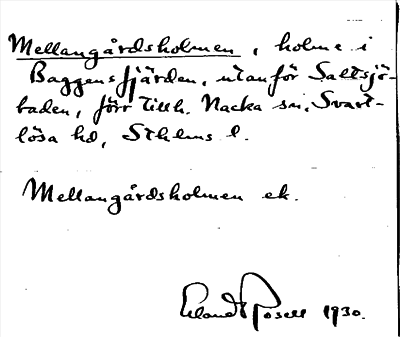 Mellangårdsholmen, holme i
Baggensfjärden, utanför Saltsjö-
baden, förr tillh. Nacka sn, Svart-
lösa hd, Sthlms l.
Mellangårdsholmen ek.
Erland Rosell 1930.